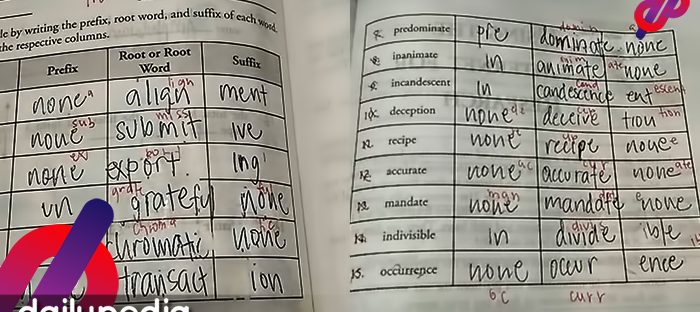 le by writing the prefix, root word, and suffix of each word
the respective columns.
Prefix Root or Root Word Suffix
none a align lign ment
none sub submit miss ive
none ex export port ing
un grat grateful none
chromatic chroma none tic
transact ion
predominate pre dominate domin none
inanimate in animate nim none ate
incandescent in candescence cand ent escent
deception none de deceive tion tion
recipe none recipe none e
accurate none ac accurate cur none ate
mandate none man mandate none
indivisible in divide ible
15. occurrence none occur ence
oc curr
dailypedia